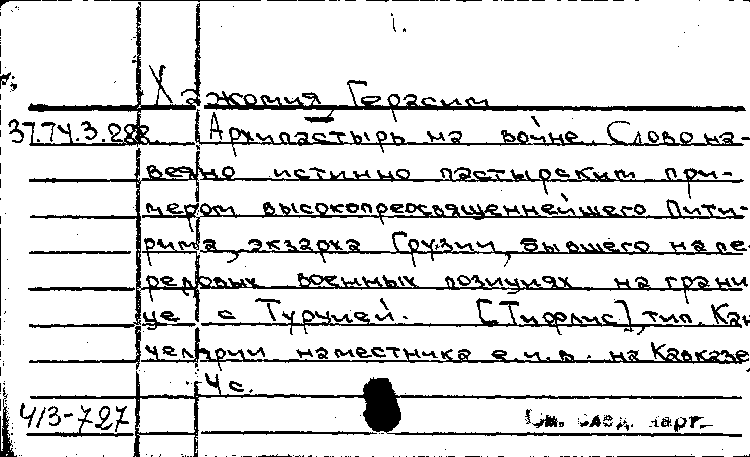 1.
Хажомия, Герасим
37.74.3.288 Архипастырь на войне. Слово на-
веяно истинно пастырским при-
мером высокопреосвященнейшего Пити-
рима, экзарха Грузии, бывшего на пе-
редовых военных позициях на грани-
це с Турцией. [Тифлис], тип. Кан-
челярии наместника е.и.в. на Кавказе,
4 с.
413-727 См. след. карт.